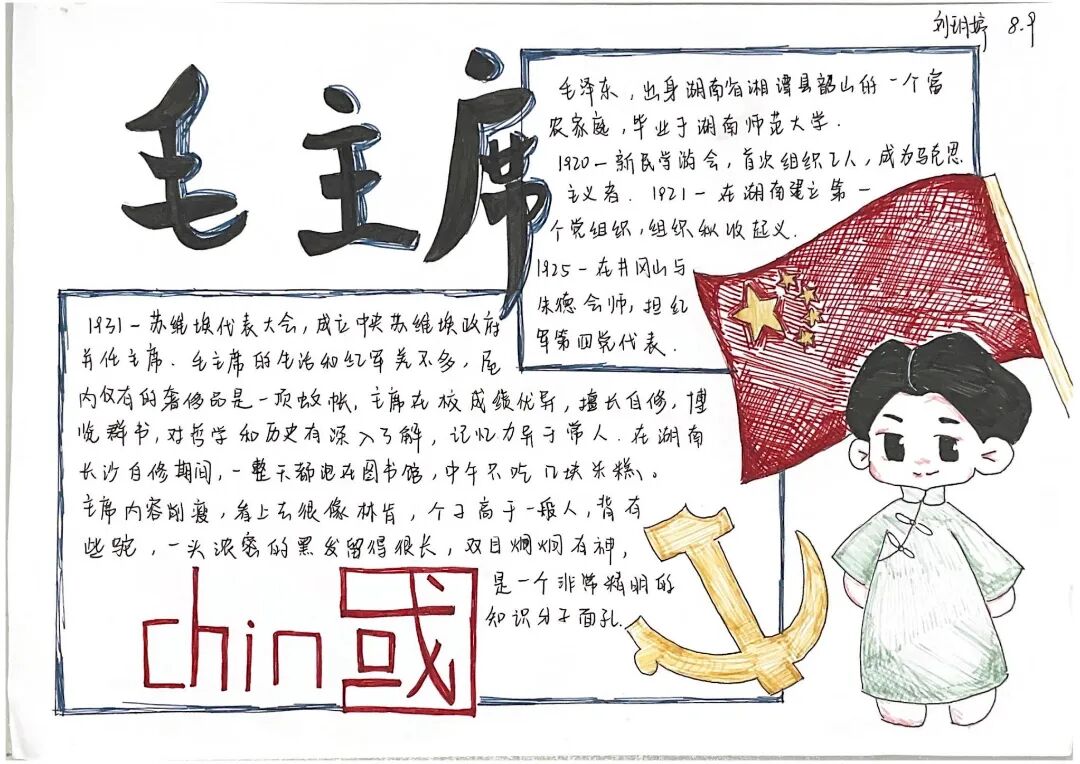 刘玥婷 8.9
毛主席
毛泽东，出身湖南省湘潭县韶山的一个富
农家庭，毕业于湖南师范大学.
1920—新民学游会，首次组织工人，成为马克思
主义者. 1921—在湖南建立第一
个党组织，组织秋收起义.
1925—在井冈山与
朱德会师，担红
军第四党代表.
1931—苏维埃代表大会，成立中央苏维埃政府
并任主席. 毛主席的生活和红军差不多，屋
内仅有的奢侈品是一顶蚊帐. 主席在校成绩优异，擅长自修，博
览群书，对哲学和历史有深入了解，记忆力异于常人. 在湖南
长沙自修期间，一整天都泡在图书馆，中午只吃几块米糕。
主席内容削瘦，看上去很像林肯，个子高于一般人，背有
些驼，一头浓密的黑发留得很长，双目炯炯有神，
是一个非常精明的
知识分子面孔.
chin国